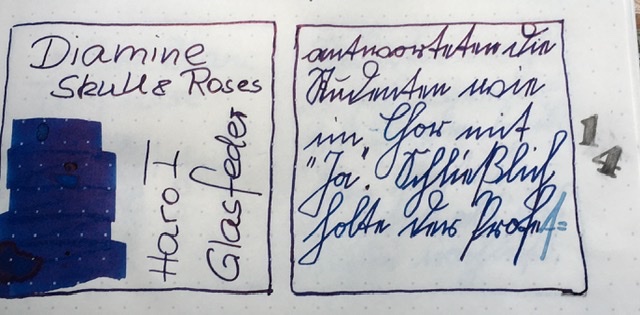 Diamine
Skull & Roses
Harot
Glasfeder
antworteten die
Studenten wie
im Chor mit
"Ja". Schließlich
holte der Profes=
14